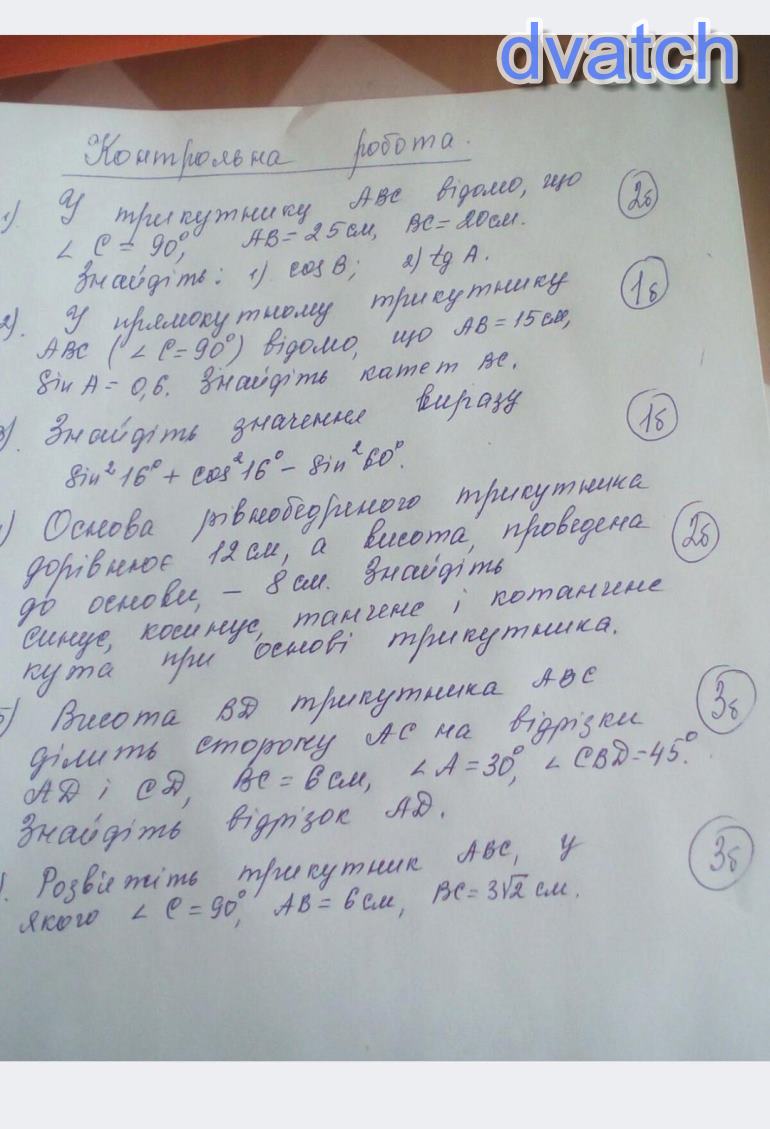 dvatch
Контрольна робота.
1) У трикутнику ABC відомо, що
∠ C = 90°, AB = 25 см, BC = 20 см. 2б
Знайдіть: 1) cos B; 2) tg A.
2). У прямокутному трикутнику 1б
ABC (∠ C = 90°) відомо, що AB = 15 см,
sin A = 0,6. Знайдіть катет BC.
3). Знайдіть значення виразу 1б
sin² 16° + cos² 16° − sin² 60°.
) Основа рівнобедреного трикутника
дорівнює 12 см, а висота, проведена 2б
до основи, – 8 см. Знайдіть
синус, косинус, тангенс і котангенс
кута при основі трикутника.
5) Висота BD трикутника ABC 3б
ділить сторону AC на відрізки
AD і CD, BC = 6 см, ∠ A = 30°, ∠ CBD = 45°.
Знайдіть відрізок AD.
. Розв'яжіть трикутник ABC, у 3б
якого ∠ C = 90°, AB = 6 см, BC = 3√2 см.